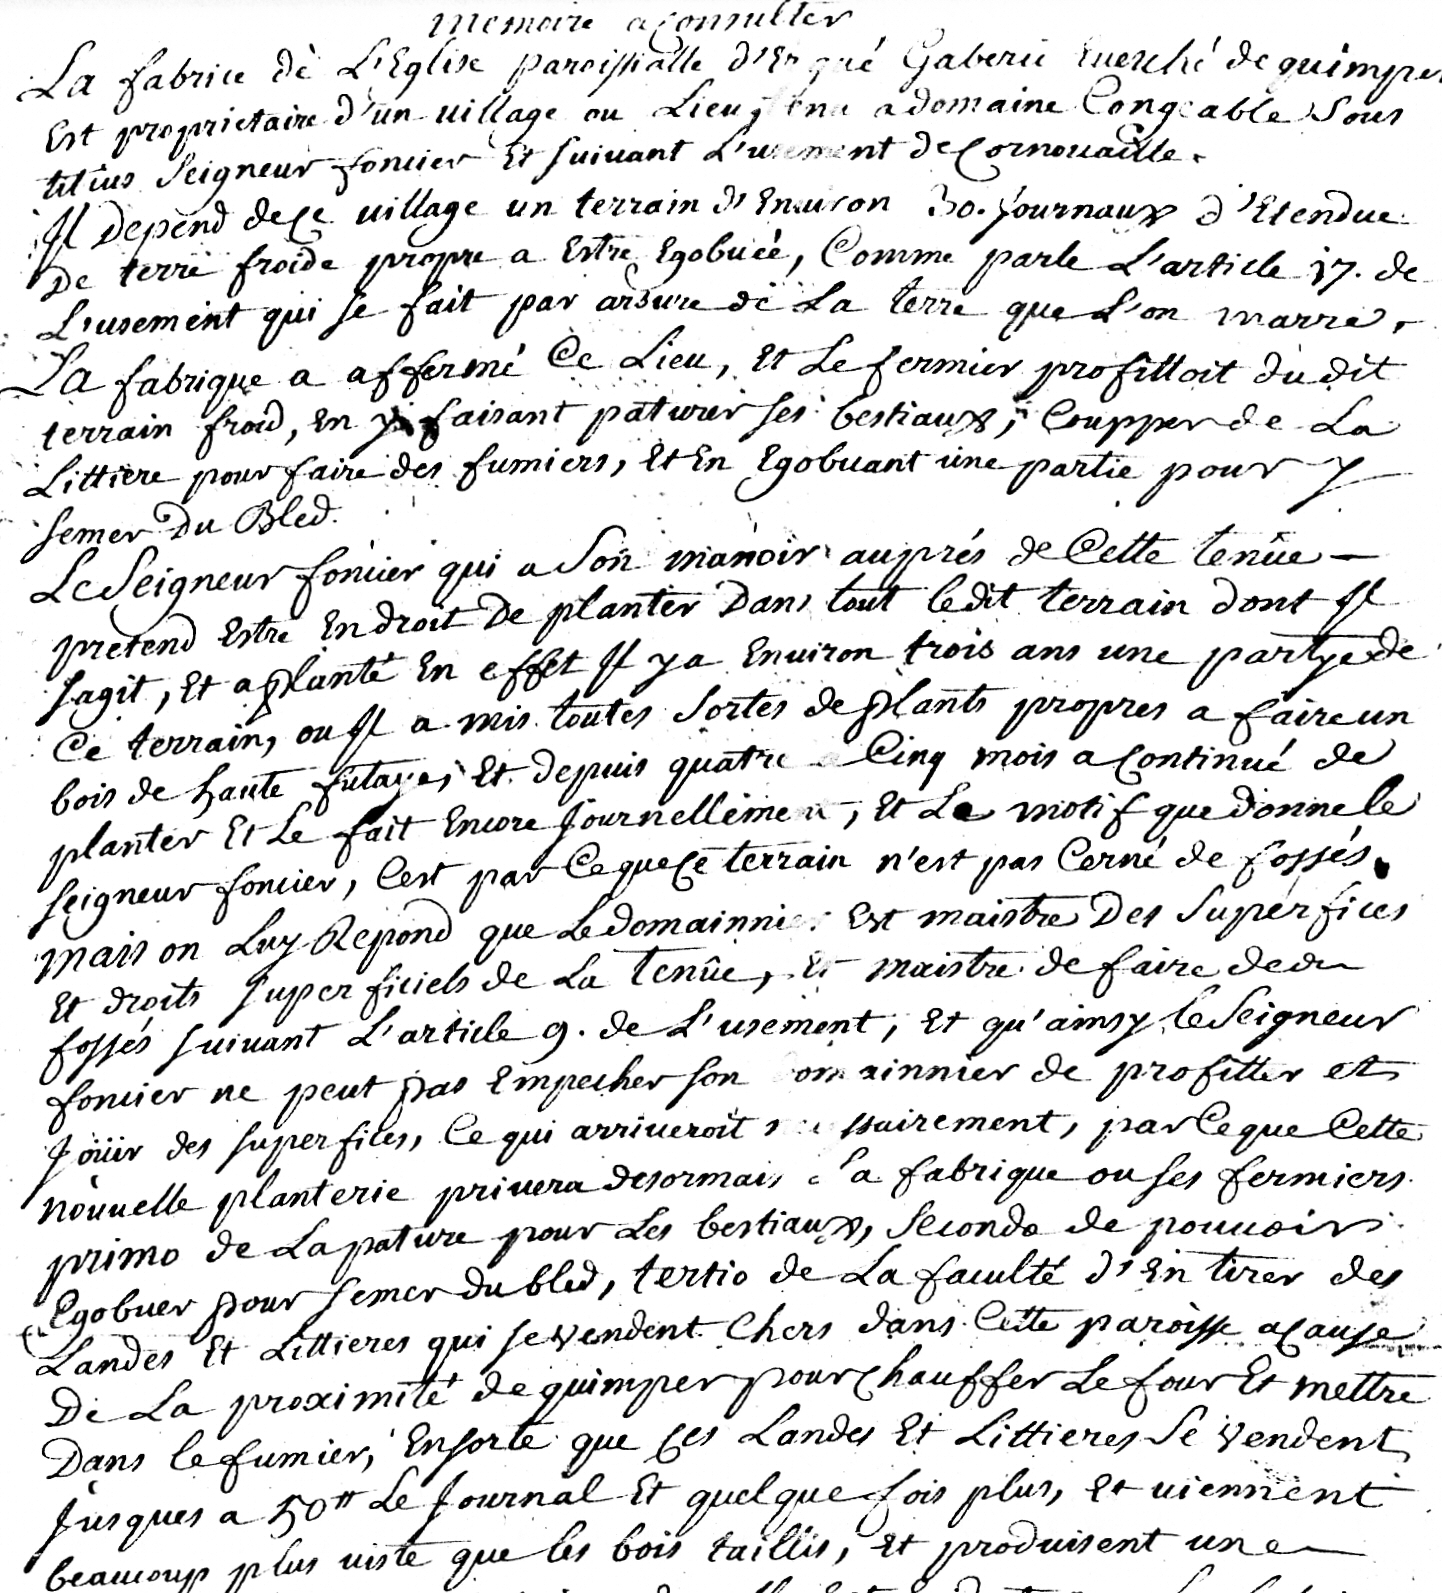 Memoire a Consulter
La fabrice dè L'Eglise paroissialle d'Ergué Gaberic Euesché de quimper
Est proprietaire d'un uillage ou Lieu tenu a domaine Congeable Sous
titius Seigneur foncier Et suiuant L'usement de Cornoüaille.
Jl Depend de Ce uillage un terrain d'Enuiron 30. Journaux d'Etendue
De terre froide propre a Estre Egobuée, Comme parle L'article 17. de
L'usement qui se fait par arsure de La terre que L'on marre,
La fabrique a affermé Ce Lieu, Et Le fermier profittoit du dit
terrain froid, En y faisant paturer ses bestiaux, Coupper de La
Littiere pour faire des fumiers, Et En Egobuant une partie pour y
semer Du Bled.
Le Seigneur foncier qui a Son manoir auprés de Cette tenüe
pretend Estre En droit De planter Dans tout ledit terrain dont Jl
sagit, Et a planté En effet Jl y a Enuiron trois ans une partye de
Ce terrain, ou Jl a mis toutes Sortes de plants propres a faire un
bois de haute futaye, Et depuis quatre a Cinq mois a Continué de
planter Et Le fait Encore Journellement, Et Le motif que donne le
seigneur foncier, Cest par Ce que Ce terrain n'est pas Cerné de fossés,
mais on Luy Repond que Le domainnier Est maistre Des Superfices
Et droits superficiels de La tenüe, Et maistre de faire des
fossés suiuant L'article 9. de L'usement, Et qu'ainsy le Seigneur
foncier ne peut pas Empecher son domainnier de profitter et
Joüir des superfices, Ce qui arriueroit necessairement, par Ce que Cette
nouuelle planterie priuera desormais La fabrique ou ses fermiers
primo de La pature pour Les bestiaux, Secondo de pouuoir
Egobuer pour semer du bled, tertio de La faculté d'En tirer des
Landes Et Littieres qui se vendent Chers dans Cette paroisse a Cause
De La proximité de quimper pour Chauffer Le four Et mettre
Dans le fumier, Ensorte que Ces Landes Et Littieres Se vendent
Jusques a 50tt Le Journal Et quelque fois plus, Et uiennent
beaucoup plus uiste que les bois taillis, Et produisent une